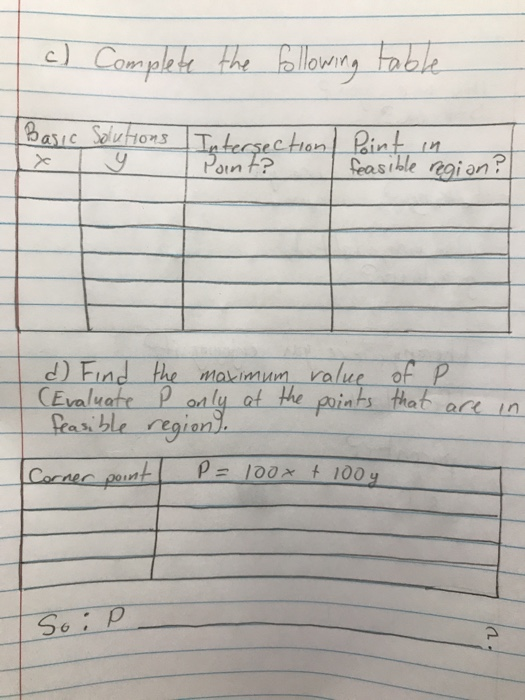 c) Complete the following table
Basic Solutions
Intersection Point?
Point in feasible region?
x y
d) Find the maximum value of P
(Evaluate P only at the points that are in
feasible region).
Corner point P = 100x + 100y
So: P ?